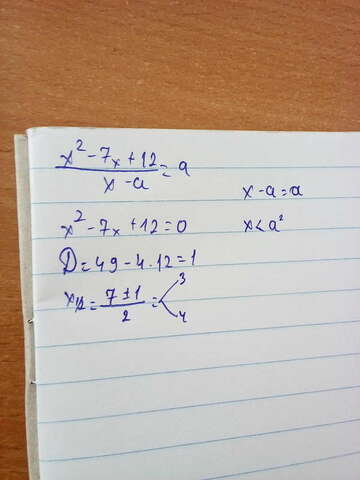 x² - 7x + 12 / x - a = a
x - a = a
x² - 7x + 12 = 0
x < a²
D = 49 - 4 · 12 = 1
x₁,₂ = 7 ± 1 / 2 = < 3
4